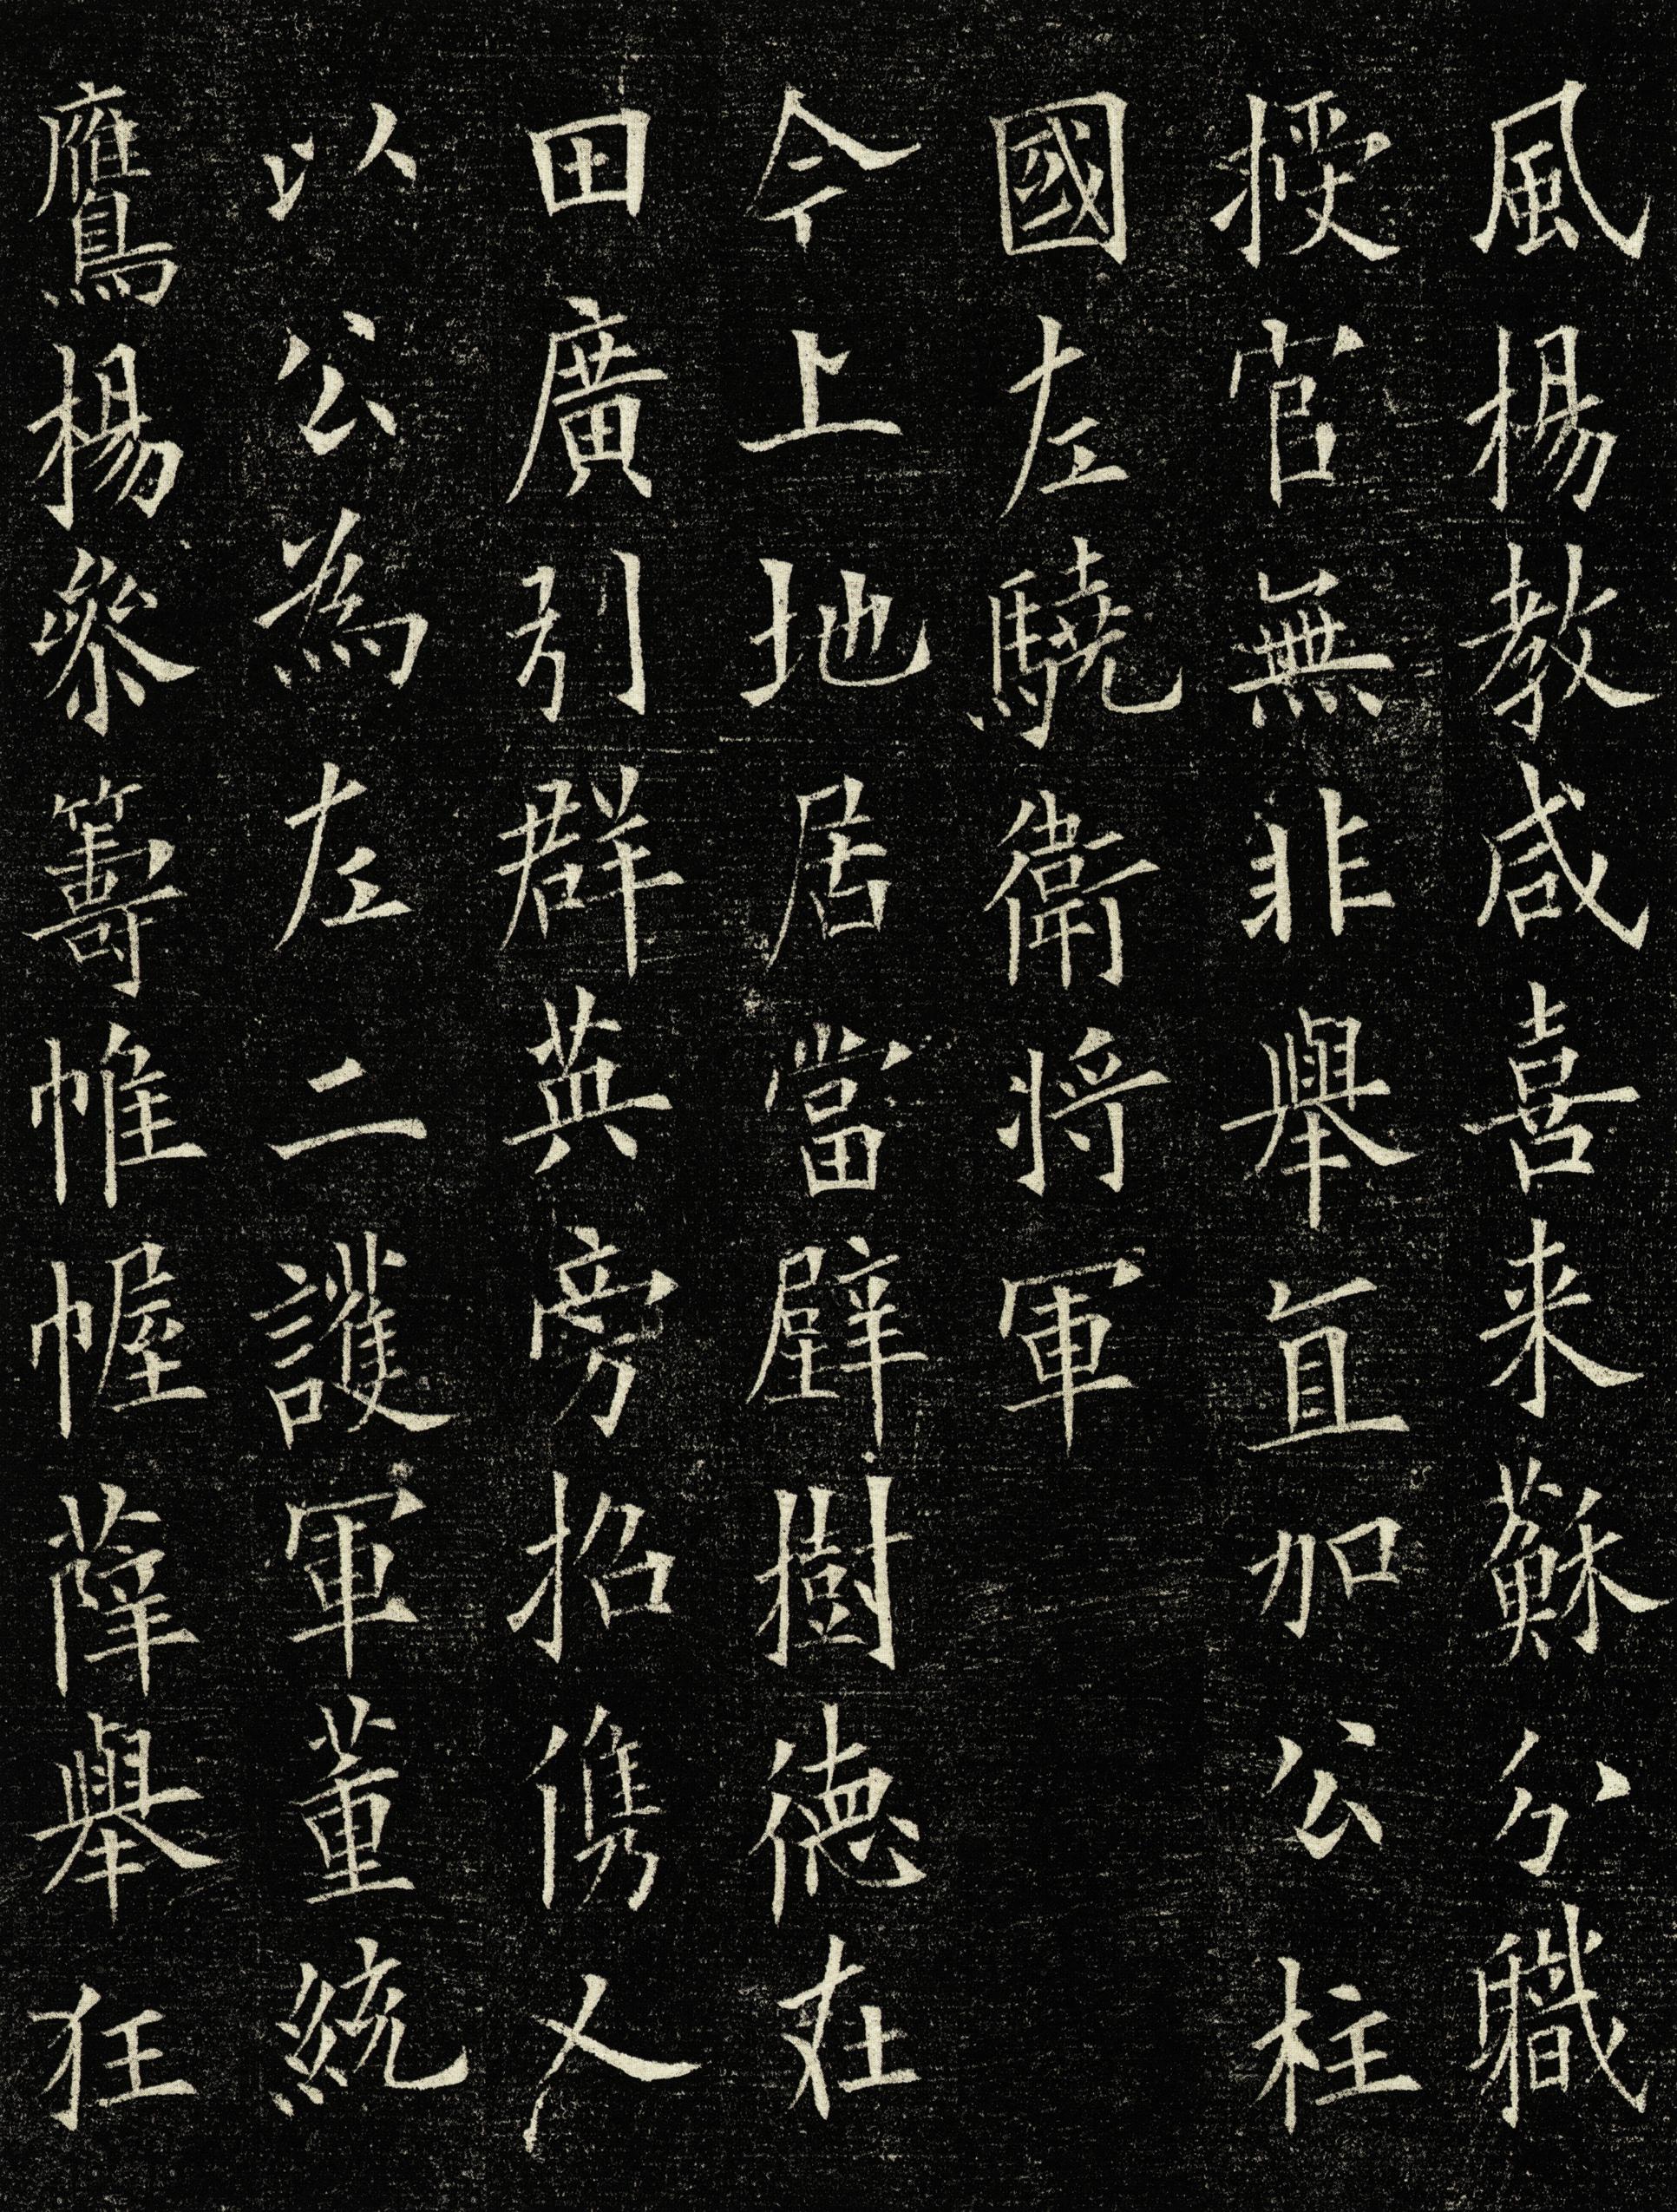 風楊教咸喜来蘇分職
授官無非舉直加公柱
國左驍衛将軍
今上地居當璧樹德在
田廣引群英旁招儁人
以公為左二護軍董統
鷹楊參籌帷幄葎舉狂